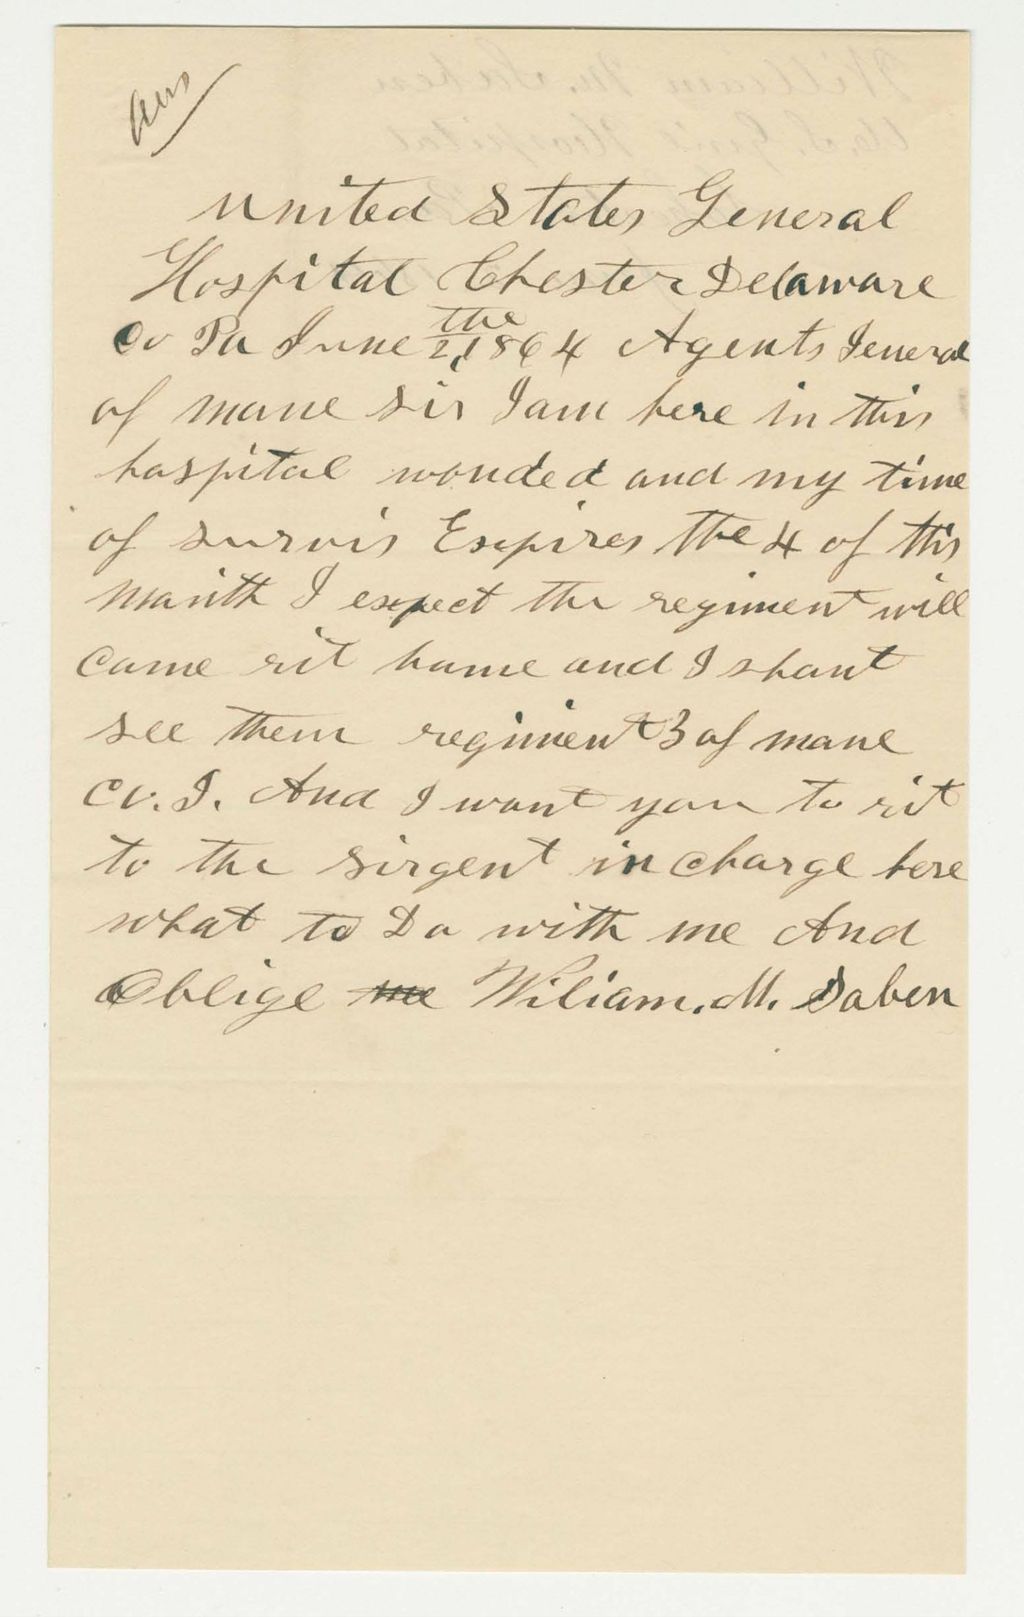 Ans
United States General
Hospital Chester Delaware
Co Pa June 2, the 1864 Agents Jeneral
of mane Sir I am here in this
hospital wonded and my time
of survis Expires the 4 of this
month I expect the regiment will
come rit home and I shant
see them regiment 3 of mane
Co. I. And I want you to rit
to the Sirgent in charge here
what to Do with me And
Oblige me Wiliam. M. Saben